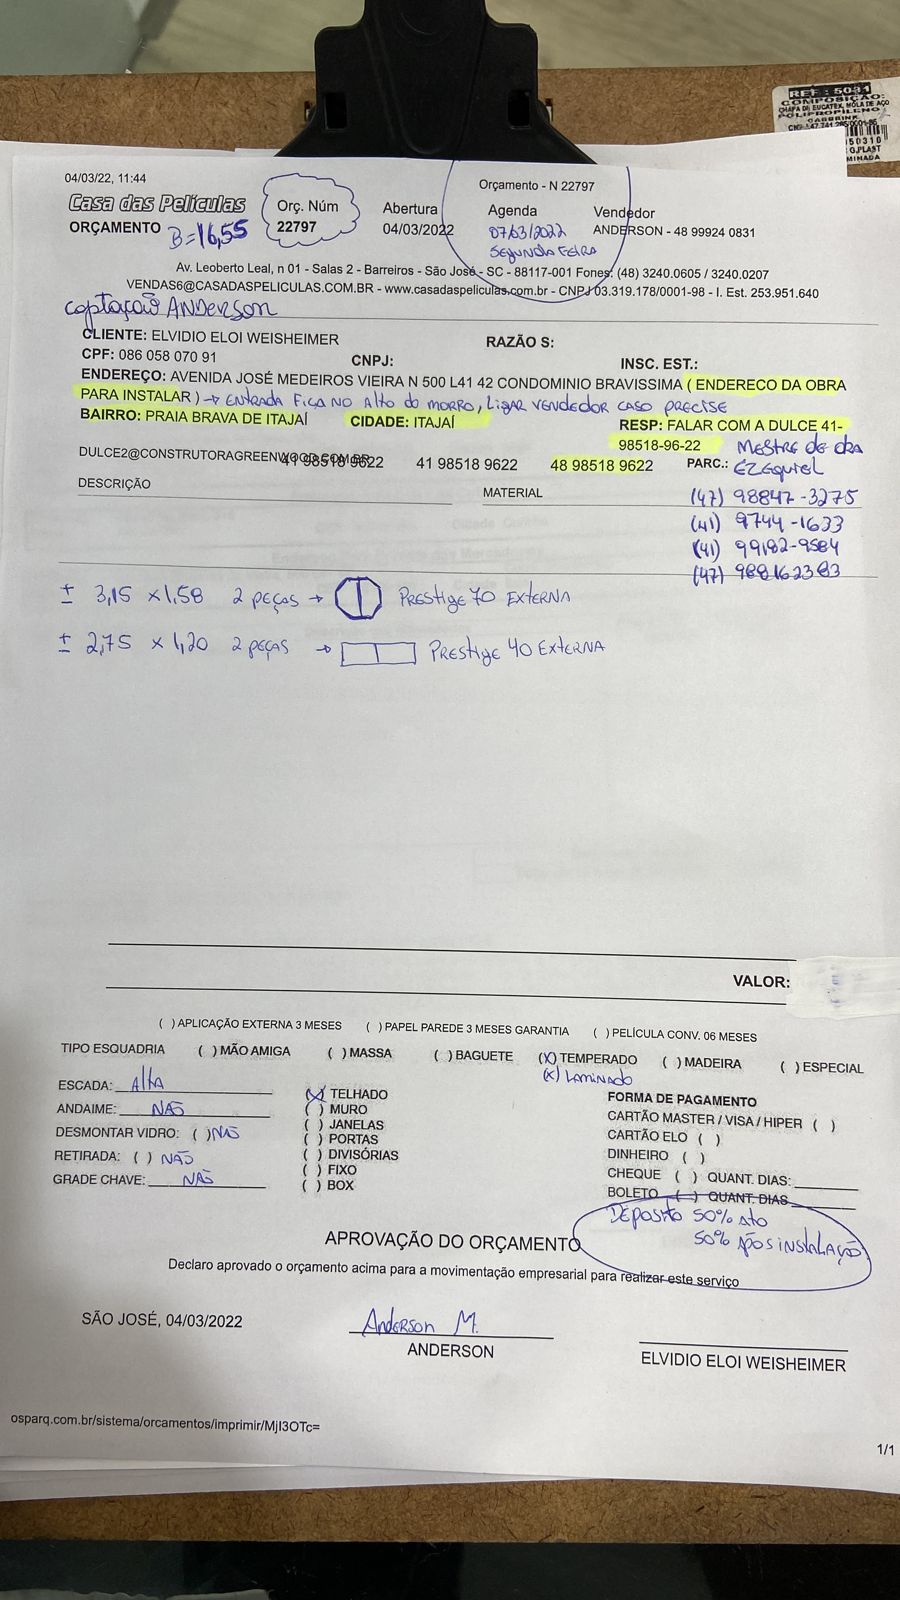 REF : 5091
COMPOSIÇÃO:
CHAPA DE EUCATEX, MOLA DE AÇO
POLIPROPILENO
50310
G.PLAST
04/03/22, 11:44
Orçamento - N 22797
Casa das Películas
Orç. Núm
Abertura
Agenda
Vendedor
ORÇAMENTO B=16,55
22797
04/03/2022
07/03/2022
ANDERSON - 48 99924 0831
SEGUNDA FEIRA
Av. Leoberto Leal, n 01 - Salas 2 - Barreiros - São José - SC - 88117-001 Fones: (48) 3240.0605 / 3240.0207
VENDAS6@CASADASPELICULAS.COM.BR - www.casadaspeliculas.com.br - CNPJ 03.319.178/0001-98 - I. Est. 253.951.640
captação ANDERSON
CLIENTE: ELVIDIO ELOI WEISHEIMER RAZÃO S:
CPF: 086 058 070 91 CNPJ: INSC. EST.:
ENDEREÇO: AVENIDA JOSÉ MEDEIROS VIEIRA N 500 L41 42 CONDOMINIO BRAVISSIMA ( ENDERECO DA OBRA
PARA INSTALAR ) → ENTRADA FICA NO ALTO DO MORRO, LIGAR VENDEDOR CASO PRECISE
BAIRRO: PRAIA BRAVA DE ITAJAÍ CIDADE: ITAJAÍ RESP: FALAR COM A DULCE 41-
98518-96-22 MESTRE DE OBRA
DULCE2@CONSTRUTORAGREENWOOD.COM.BR 41 98518 9622 41 98518 9622 48 98518 9622 PARC.: EZEQUIEL
DESCRIÇÃO MATERIAL (47) 98847-3275
(41) 9744-1633
(41) 99192-9584
(47) 988162383
± 3,15 x 1,58 2 PEÇAS → PRESTIGE 70 EXTERNA
± 2,75 x 1,20 2 PEÇAS → PRESTIGE 40 EXTERNA
VALOR:
( ) APLICAÇÃO EXTERNA 3 MESES ( ) PAPEL PAREDE 3 MESES GARANTIA ( ) PELÍCULA CONV. 06 MESES
TIPO ESQUADRIA ( ) MÃO AMIGA ( ) MASSA ( ) BAGUETE (X) TEMPERADO ( ) MADEIRA ( ) ESPECIAL
(X) LAMINADO
ESCADA: Alta
ANDAIME: NÃO
DESMONTAR VIDRO: ( ) NÃO
RETIRADA: ( ) NÃO
GRADE CHAVE: NÃO
(X) TELHADO
( ) MURO
( ) JANELAS
( ) PORTAS
( ) DIVISÓRIAS
( ) FIXO
( ) BOX
FORMA DE PAGAMENTO
CARTÃO MASTER / VISA / HIPER ( )
CARTÃO ELO ( )
DINHEIRO ( )
CHEQUE ( ) QUANT. DIAS:
BOLETO ( ) QUANT. DIAS
DEPOSITO 50% Ato
50% APÓS INSTALAÇÃO
APROVAÇÃO DO ORÇAMENTO
Declaro aprovado o orçamento acima para a movimentação empresarial para realizar este serviço
SÃO JOSÉ, 04/03/2022
Anderson M.
ANDERSON
ELVIDIO ELOI WEISHEIMER
osparq.com.br/sistema/orcamentos/imprimir/MjI3OTc=
1/1